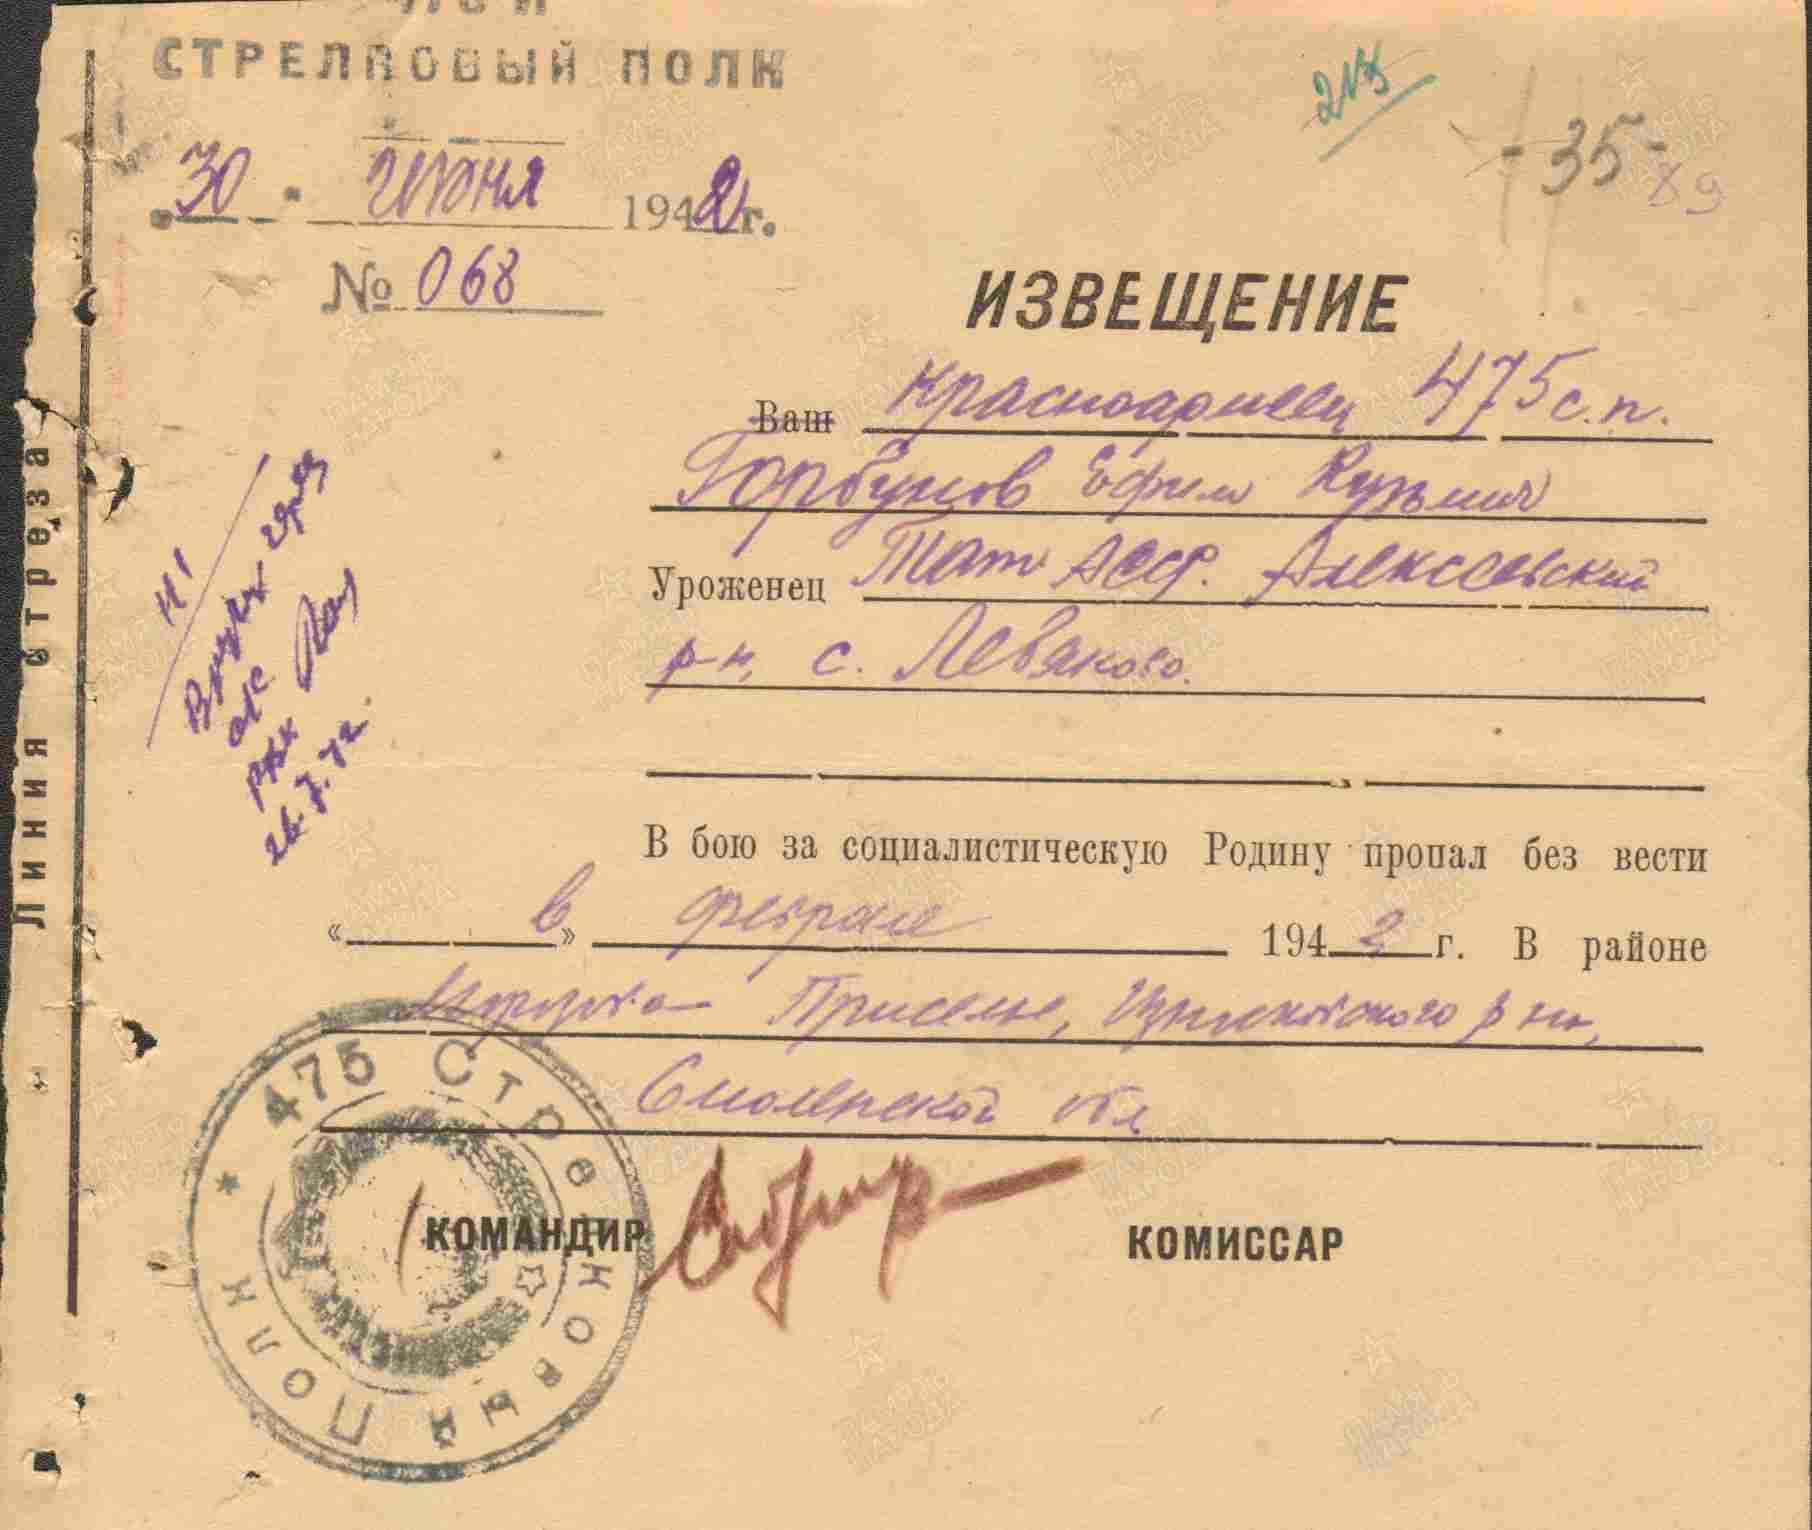 СТРЕЛКОВЫЙ ПОЛК
"30" июня 1942 г.
№ 068
213
-35-
89
ИЗВЕЩЕНИЕ
Ваш Красноармеец 475 с.п.
Горбунов Ефим Кузьмич
Уроженец Тат АССР. Алексеевский
р-н, с. Левяхово.
В бою за социалистическую Родину пропал без вести
« в » феврале 1942 г. В районе
Приселье, Издешковского р-на,
Смоленской обл
КОМАНДИР
КОМИССАР
475 Стрелковый Полк
Линия отреза
Н1
РВК
26.7.42
ПАМЯТЬ НАРОДА